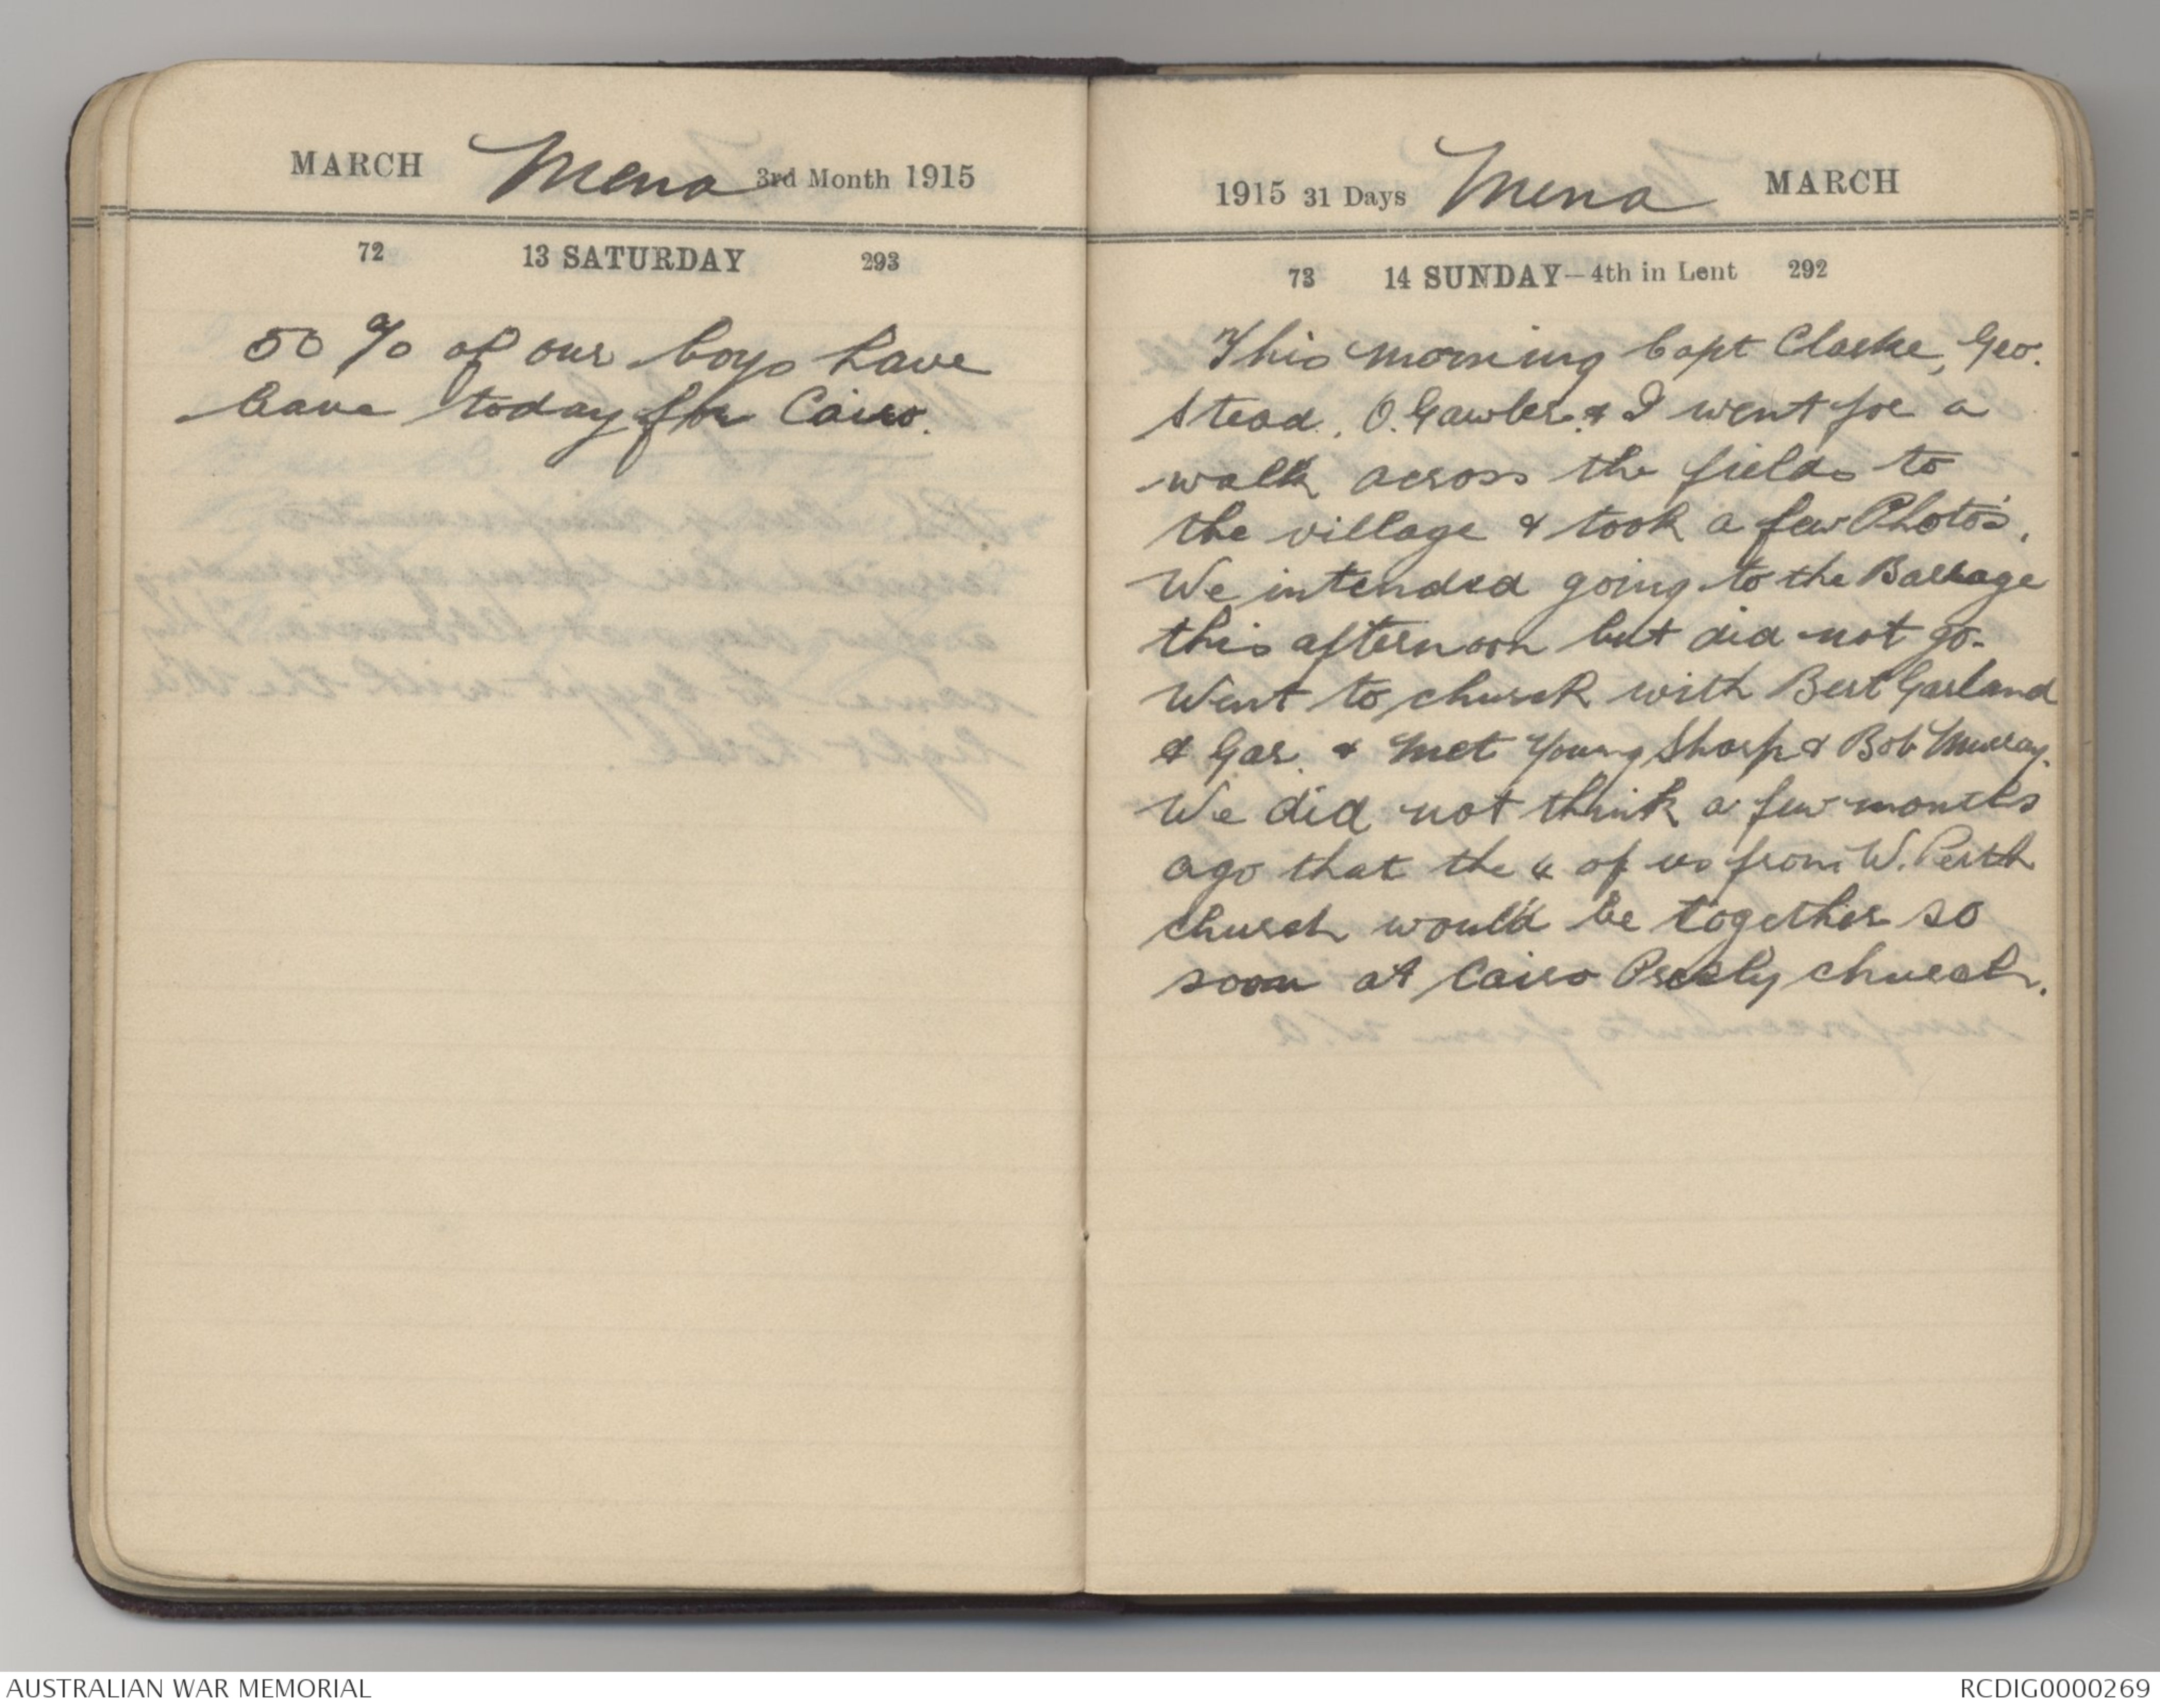 MARCH Mena 3rd Month 1915
72 13 SATURDAY 293
50 % of our boys have
leave today for Cairo.
1915 31 Days Mena MARCH
73 14 SUNDAY—4th in Lent 292
This morning Capt Clarke, Geo.
Stead, O. Gawler & I went for a
walk across the fields to
the village & took a few Photo's.
We intended going to the Barrage
this afternoon but did not go.
Went to church with Bert Garland
& Gar. & met Young Sharp & Bob Murray.
We did not think a few months
ago that the 4 of us from W. Perth
church would be together so
soon at Cairo Presby church.
AUSTRALIAN WAR MEMORIAL
RCDIG0000269